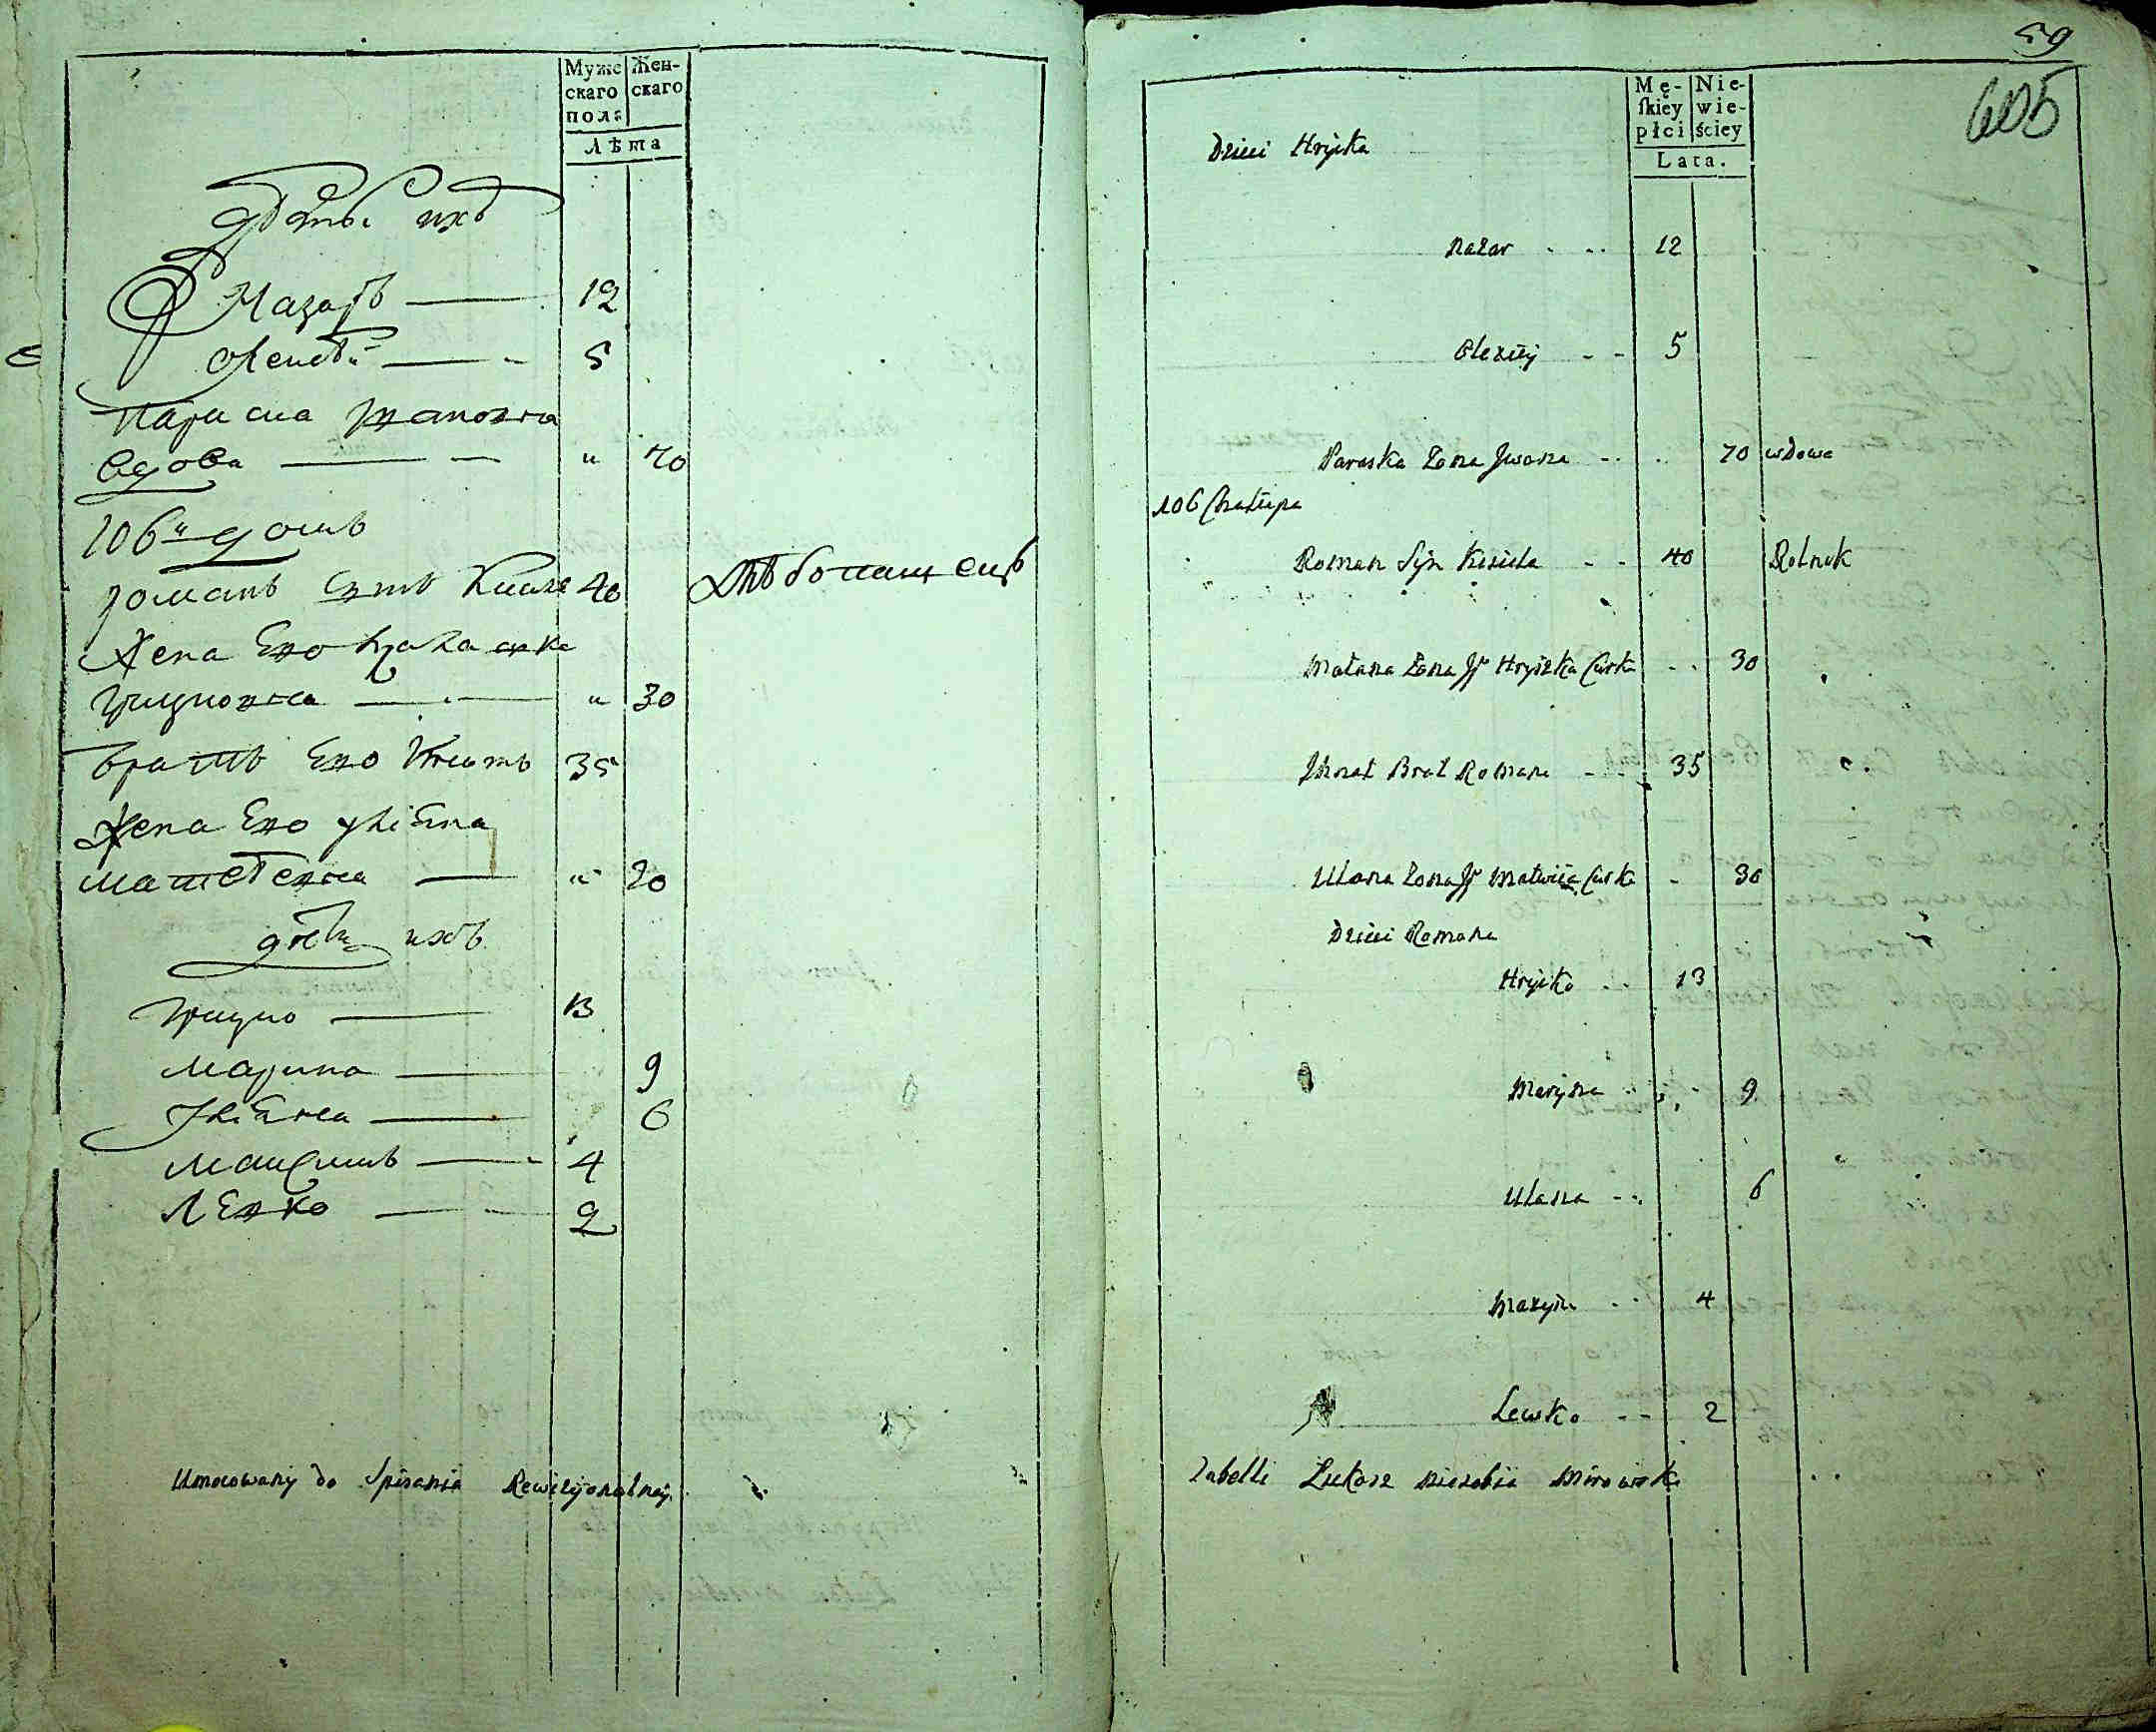 Муже
скаго
пола
Жен-
скаго
Лѣта
Дѣти ихъ
Назаръ 12
Олексѣй 5
Параска Ивановна
Вдова " 70
106й домъ
Романъ Сынъ Кисиля 40 Хлѣбопашецъ
Жена Его
Грицковна " 30
братъ Его Игнатъ 35
Жена Его Ульяна
Матвѣевна " 30
дѣти ихъ
Грицко 13
Марина 9
Ульяна 6
Максимъ 4
Левко 2
Umocowany do Spisania Rewizyonalney
59
605
Mę-
ſkiey
płci
Nie-
wie-
ściey
Lata.
Dzieci Hryćka
Nazar 12
Olexiey 5
Paraska Żona Jwana 70 wdowa
106 Chałupa
Roman Syn Kisiela 40 Rolnik
Małana Żona Jg° Hryćka Curka 30
Jhnat Brat Romana 35
Ulana Żona Jg° Matwiia Curka 30
Dzieci Romana
Hryćko 13
Maryna 9
Ulana 6
Maxym 4
Lewko 2
Tabelli Łukasz